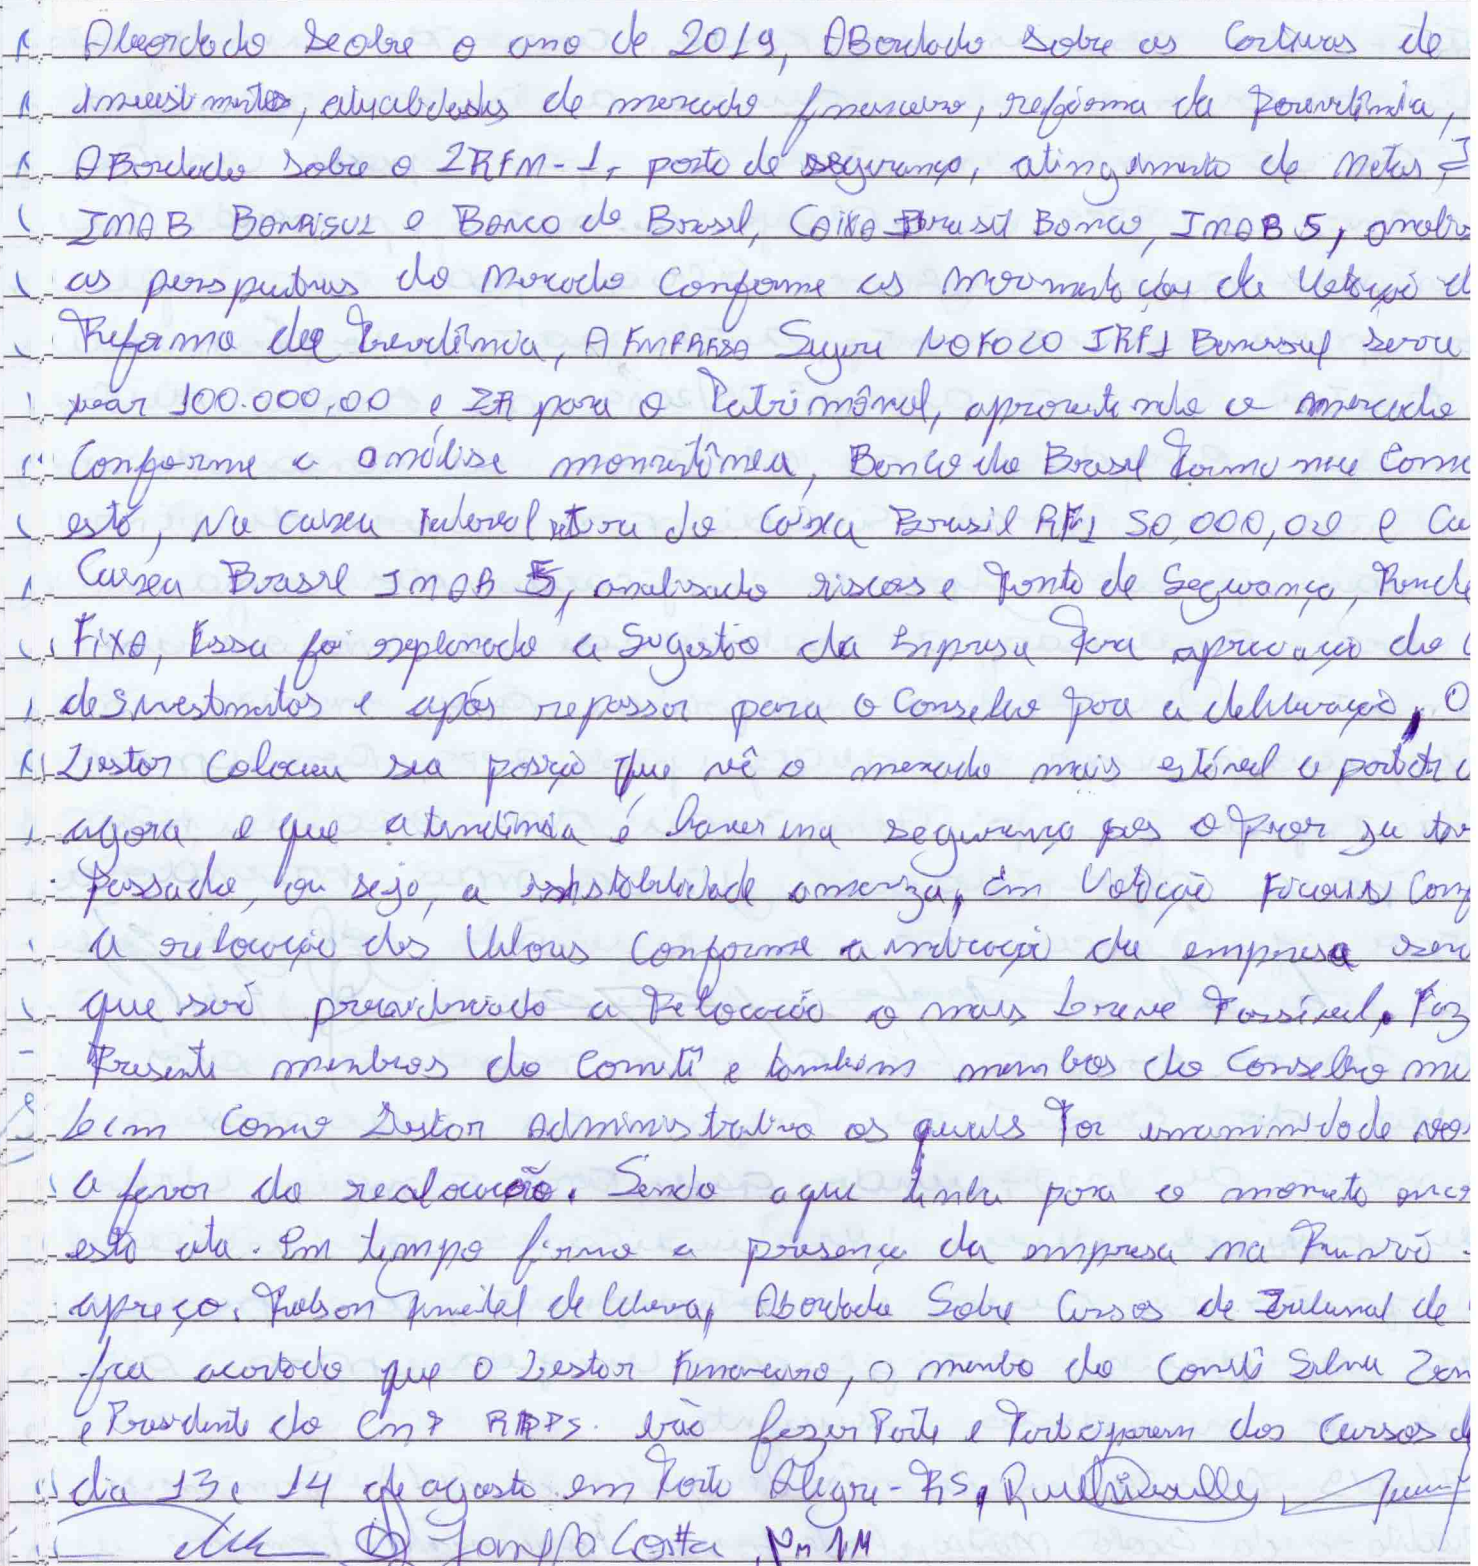 Abordado sobre o ano de 2019, Abordado sobre as Carteiras de
Investimentos, atualidades de mercado financeiro, reforma da Previdência,
ABordado sobre o IRFM-1, ponto de segurança, atingimento de Metas,
IMAB BANRISUL e Banco do Brasil, CAIXA Brasil Banco, IMAB 5,
as perspectivas do Mercado Conforme as movimentações da Votação
Reforma da Previdência, A EMPRESA Sugere NO FOCO IRF1 Banrisul
100.000,00 e para o Patrimonial, aproveitando o mercado
Conforme a análise momentânea, Banco do Brasil
está, Na Caixa Federal do Caixa Brasil RF1 50.000,00 e
Caixa Brasil IMAB 5, analisado riscos e Ponto de Segurança,
FIXA, Essa foi explanado a Sugestão da Empresa Para apreciação do
de Investimentos e após repassar para o Conselho para a deliberação, O
Gestor Colocou sua posição que vê o mercado mais estável a partir
agora e que a tendência é haver uma segurança pois o Pior já
Passado, ou seja, a instabilidade ameniza, Em Votação
a relocação dos Valores Conforme a indicação da empresa
que será providenciado a Relocação o mais breve Possível,
Presente membros do Comitê e também membros do Conselho
bem Como Gestor Administrativo os quais Por unanimidade
a favor da realocação. Sendo o que tinha para o momento
esta ata. Em tempo a presença da empresa na Reunião
apreço. Abordado Sobre Cursos de Tribunal de
acordado que o Gestor Financeiro, o membro do Comitê
e Presidente do RPPS. irão fazer Parte e Participarem dos Cursos
dia 13 e 14 de agosto em Porto Alegre-RS,